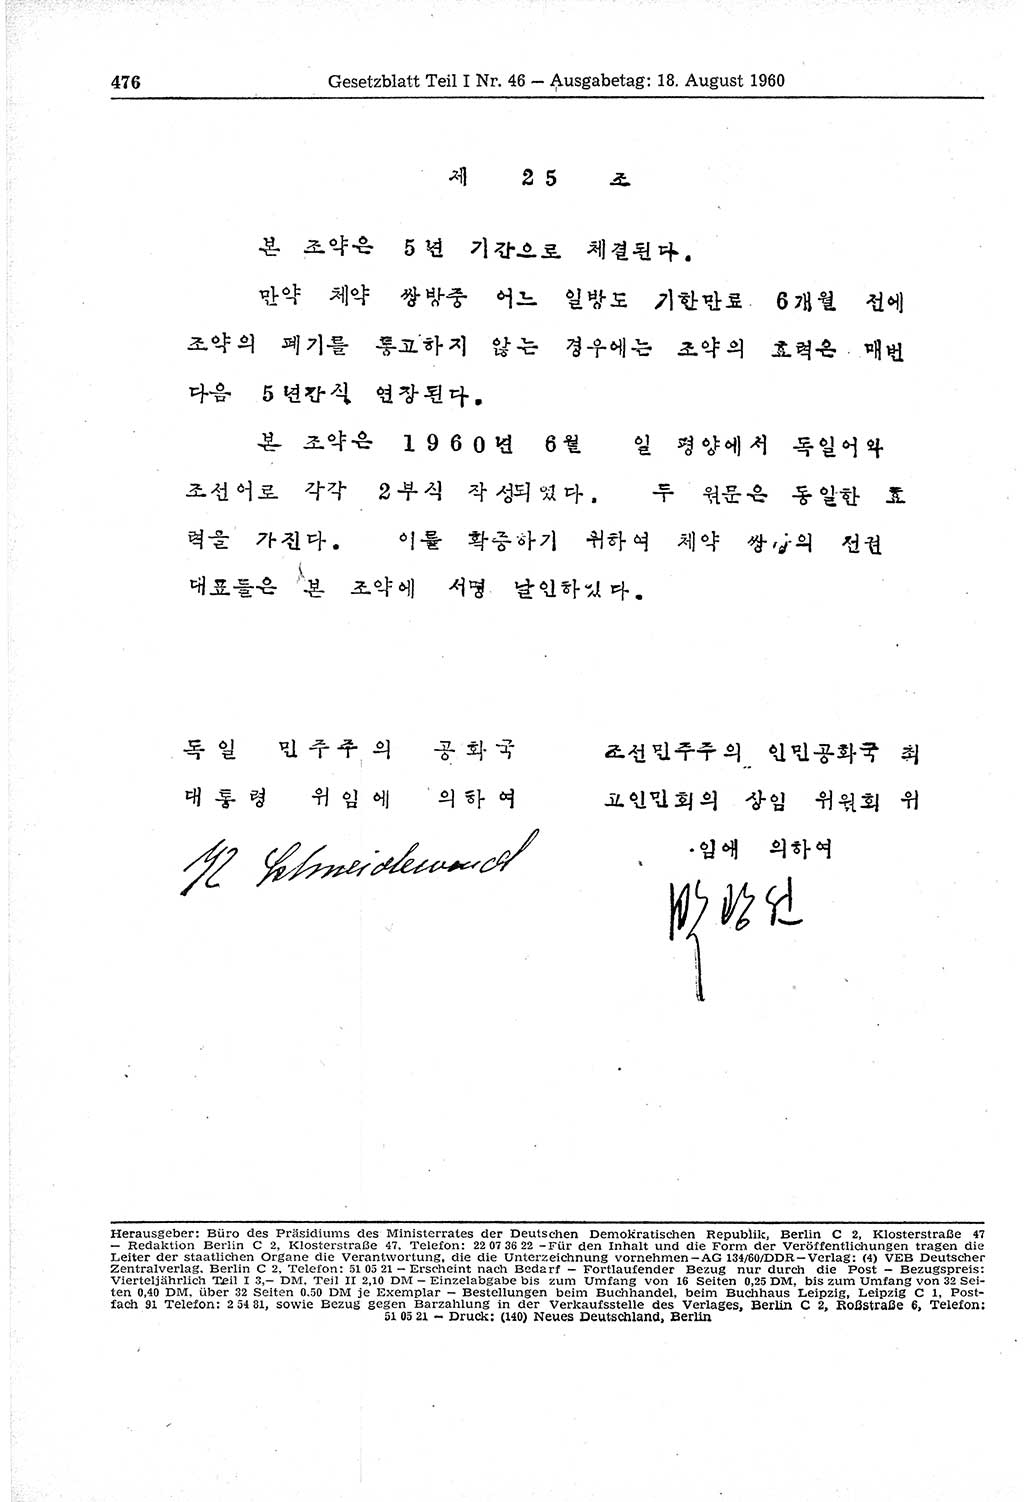 476
Gesetzblatt Teil I Nr. 46 — Ausgabetag: 18. August 1960
제 25 조
본 조약은 5년 기간으로 체결된다.
만약 체약 쌍방중 어느 일방도 기한만료 6개월 전에
조약의 페기를 통고하지 않는 경우에는 조약의 효력은 매번
다음 5년간식 연장된다.
본 조약은 1960년 6월 일 평양에서 독일어와
조선어로 각각 2부식 작성되였다. 두 원문은 동일한 효
력을 가진다. 이를 확증하기 위하여 체약 쌍방의 전권
대표들은 본 조약에 서명 날인하였다.
독일 민주주의 공화국
대통령 위임에 의하여
조선민주주의 인민공화국 최
고인민회의 상임 위원회 위
임에 의하여
Schneidewand
박광선
Herausgeber: Büro des Präsidiums des Ministerrates der Deutschen Demokratischen Republik, Berlin C 2, Klosterstraße 47
— Redaktion Berlin C 2, Klosterstraße 47, Telefon: 22 07 36 22 – Für den Inhalt und die Form der Veröffentlichungen tragen die
Leiter der staatlichen Organe die Verantwortung, die die Unterzeichnung vornehmen – AG 134/60/DDR – Verlag: (4) VEB Deutscher
Zentralverlag, Berlin C 2, Telefon: 51 05 21 – Erscheint nach Bedarf – Fortlaufender Bezug nur durch die Post – Bezugspreis:
Vierteljährlich Teil I 3,– DM, Teil II 2,10 DM – Einzelabgabe bis zum Umfang von 16 Seiten 0,25 DM, bis zum Umfang von 32 Sei-
ten 0,40 DM, über 32 Seiten 0.50 DM je Exemplar – Bestellungen beim Buchhandel, beim Buchhaus Leipzig, Leipzig C 1, Post-
fach 91 Telefon: 2 54 81, sowie Bezug gegen Barzahlung in der Verkaufsstelle des Verlages, Berlin C 2, Roßstraße 6, Telefon:
51 05 21 – Druck: (140) Neues Deutschland, Berlin